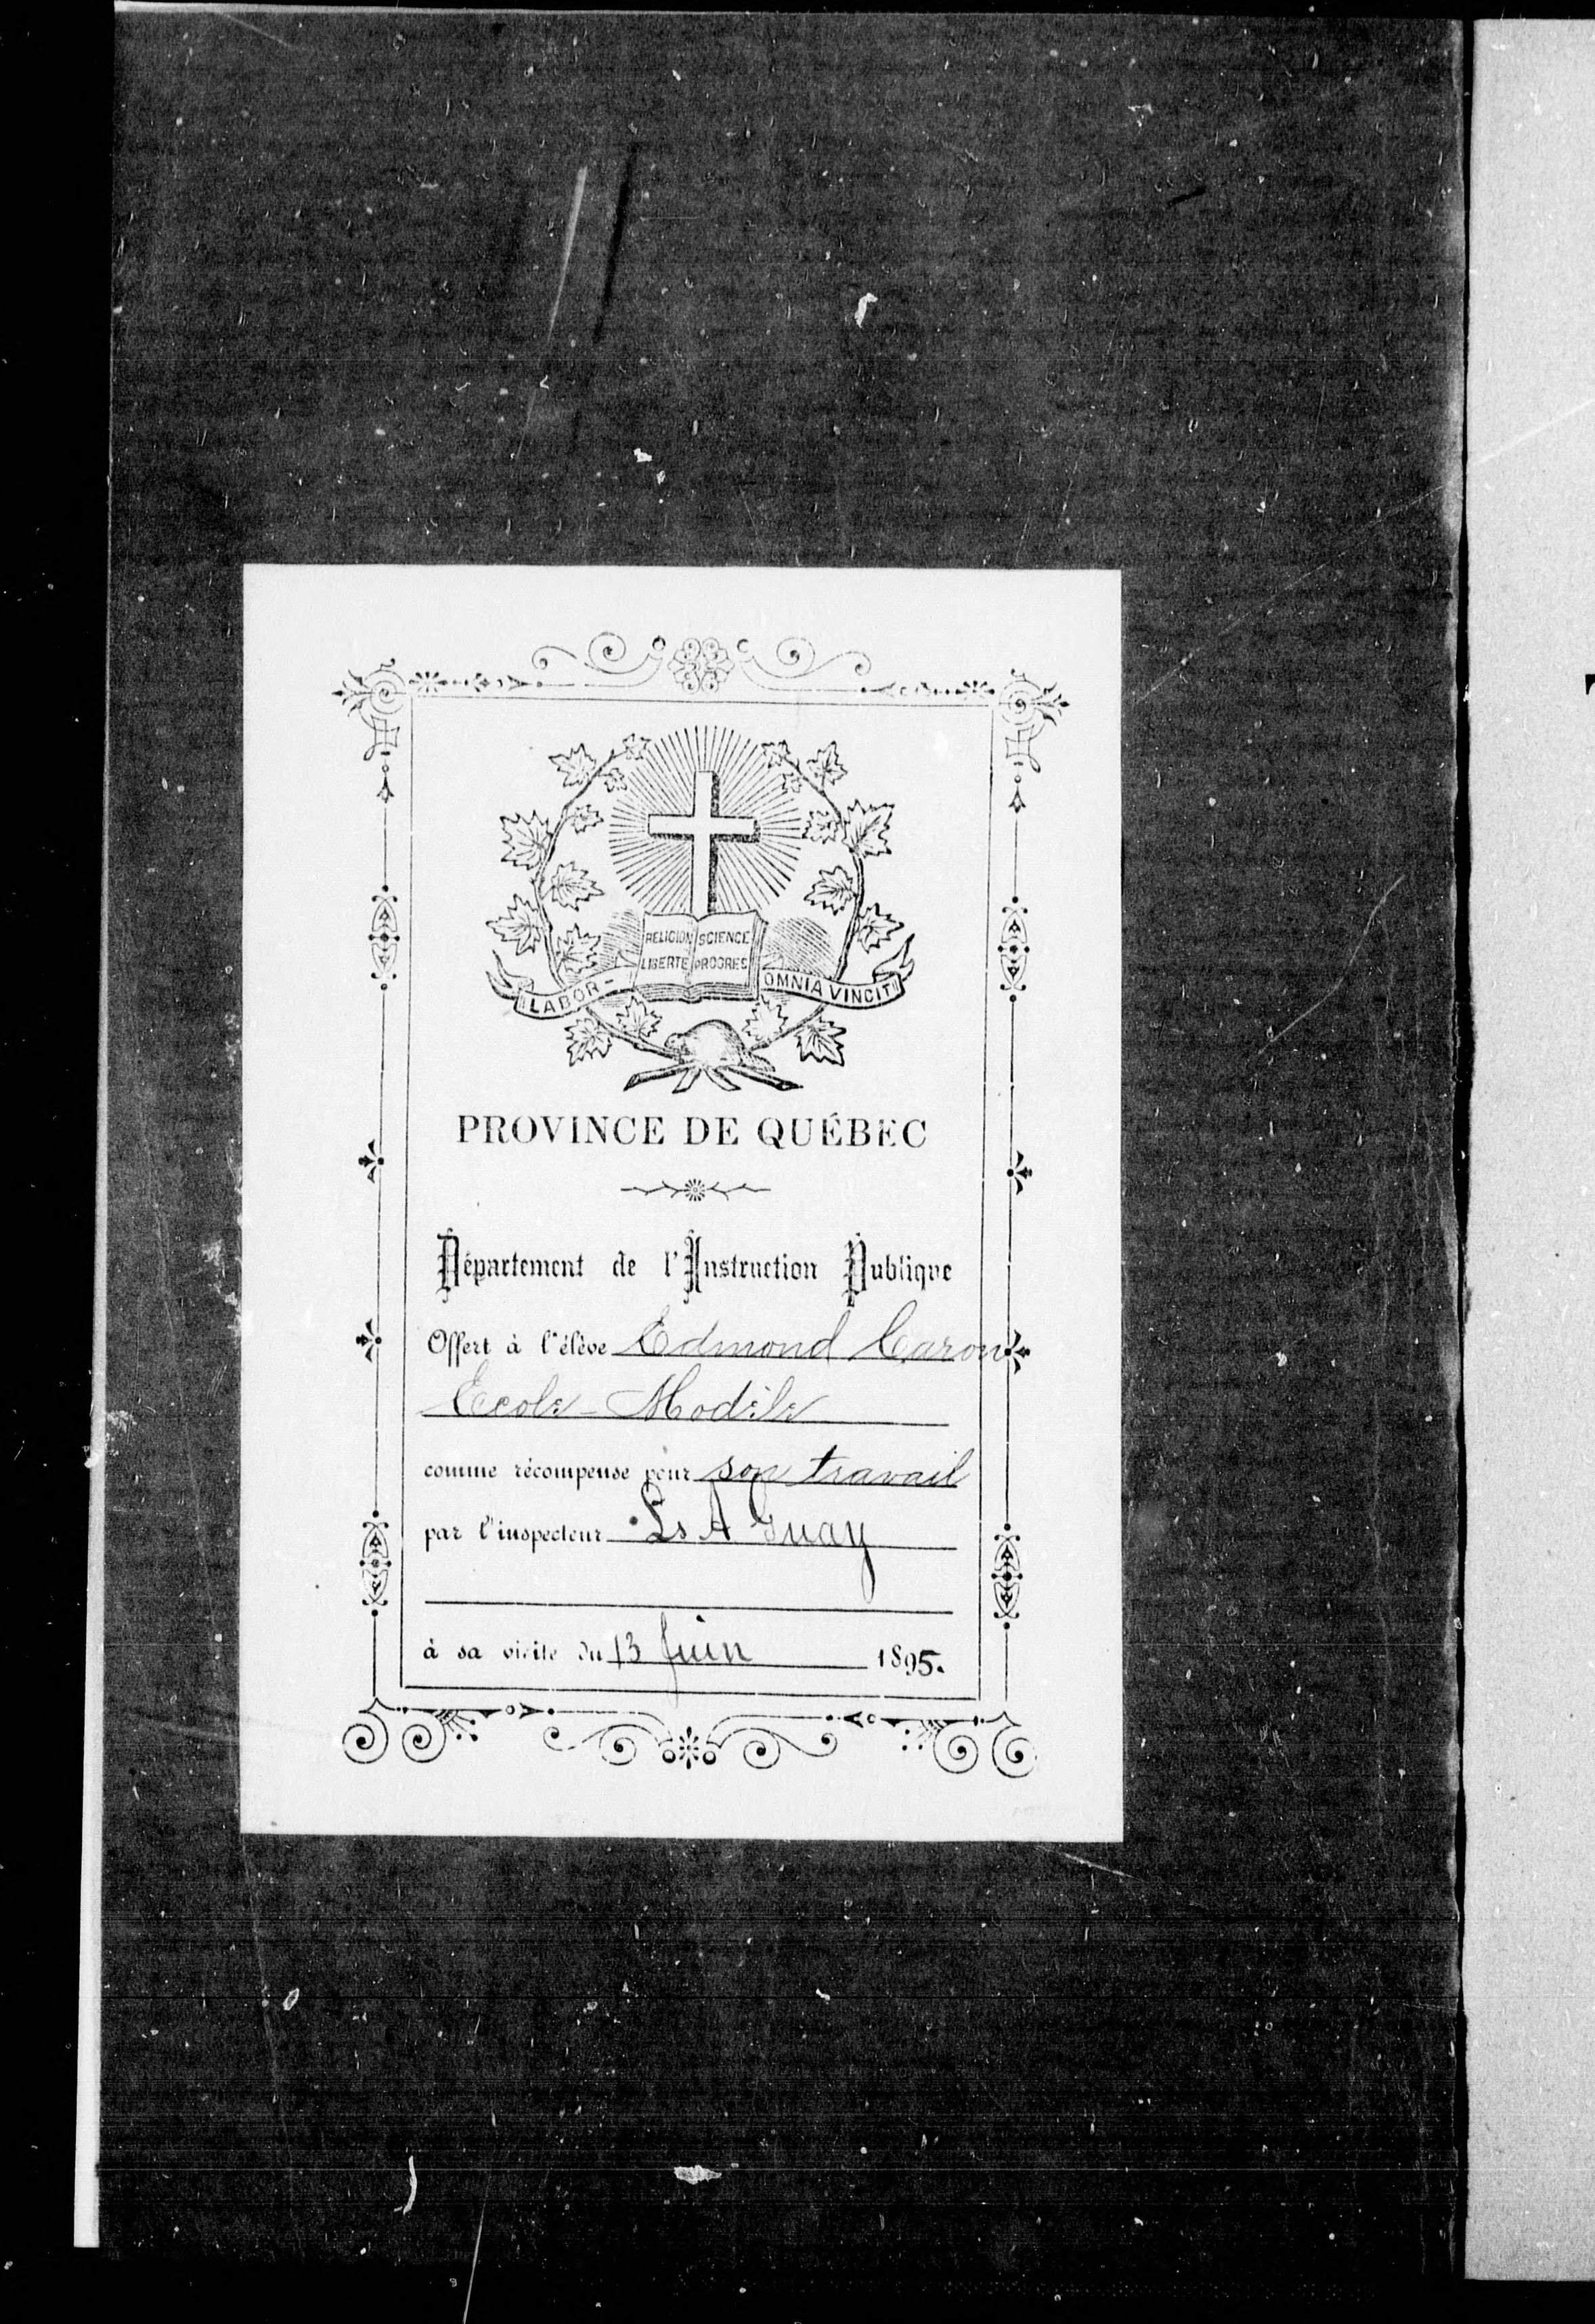 RELIGION SCIENCE
LIBERTE PROGRES
LABOR - OMNIA VINCIT
PROVINCE DE QUÉBEC
Département de l'Instruction Publique
Offert à l'élève Edmond Caron
Ecole - Modèle
comme récompense pour son travail
par l'inspecteur Ls A Guay
à sa visite du 13 Juin 1895.